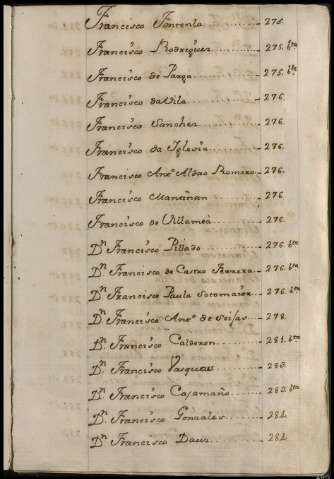 Francisco Fonrenla 275.
Francisco Rodriguez 275. bta
Francisco de Parga 275. bta
Francisco da Vila 276.
Francisco Sanchez 276.
Francisco da Iglesia 276.
Francisco Anto. Aldao Romero 276.
Francisco Mansinan 276
Francisco de Villameá 276.
Dn. Francisco Pillado 276. bta
Dn. Francisco de Castro 276. bta
Dn. Francisco Paula Sotomaior 276. bta
Dn. Francisco Anto. de Seijas 278.
Dn. Francisco Calderon 281. bta
Dn. Francisco Vasquez 283.
Dn. Francisco Caamaño 283. bta
Dn. Francisco Gonzales 284.
Dn. Francisco 284.